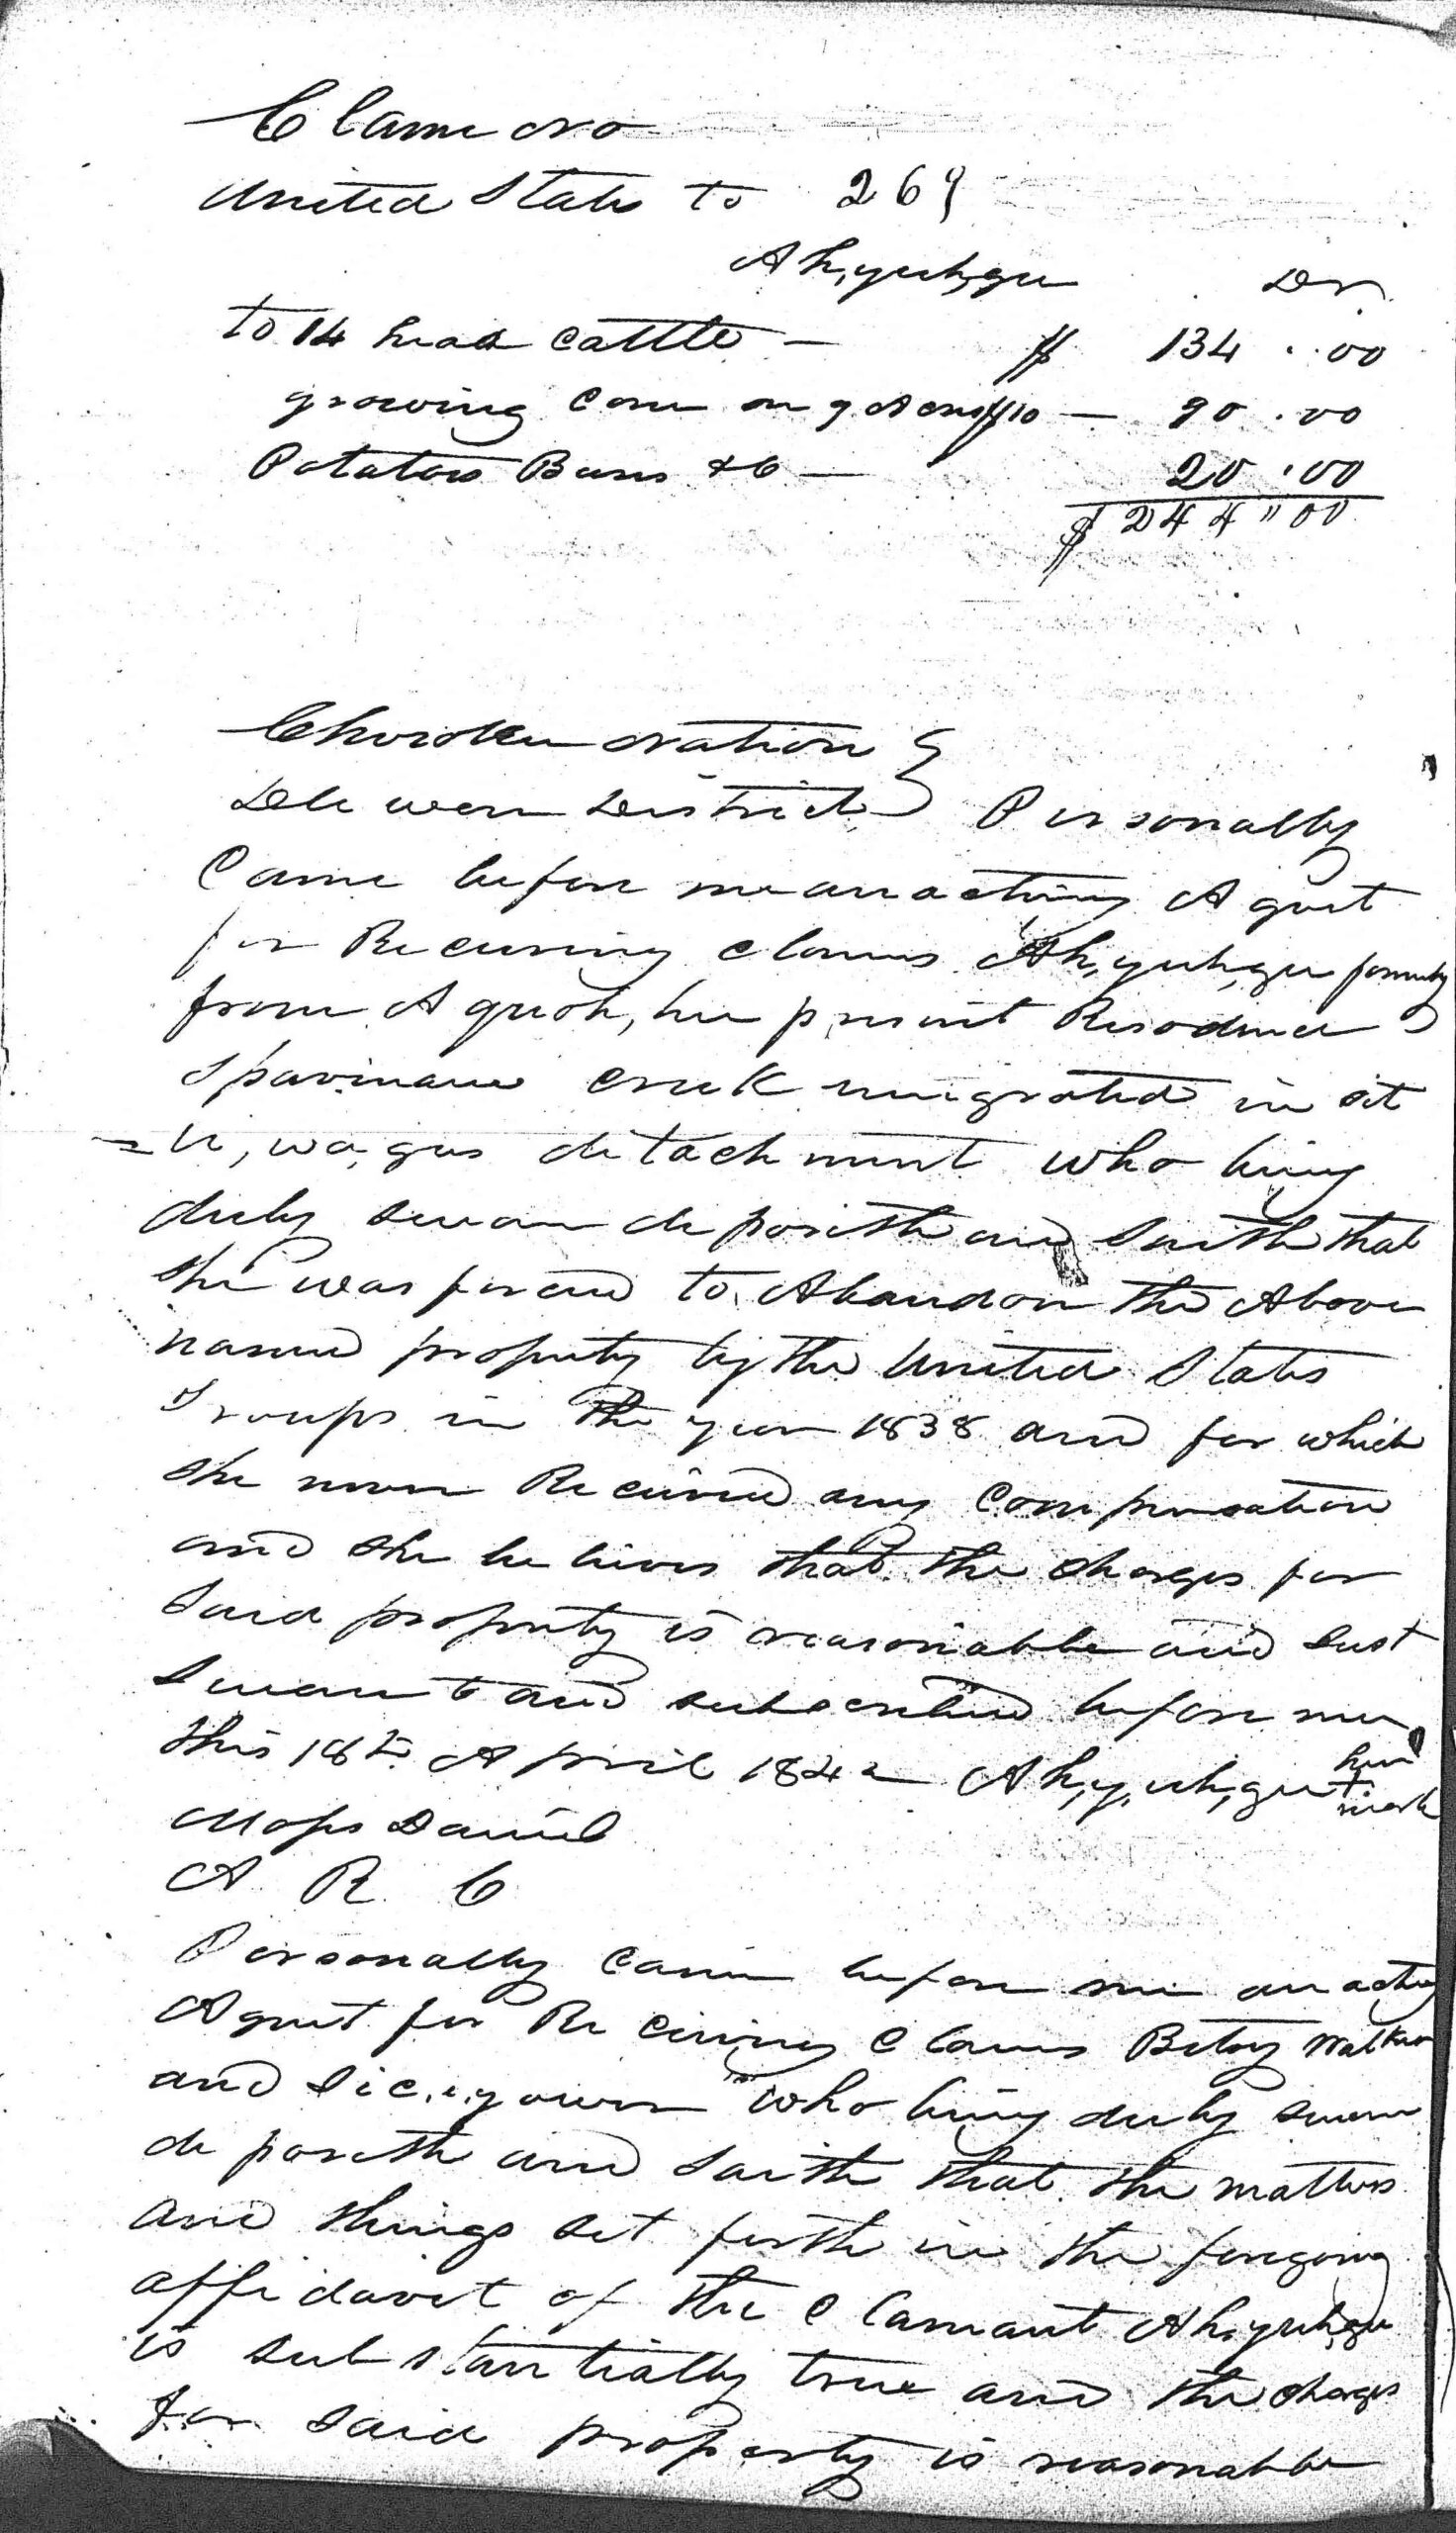 Claim No
United States to 269
Ah,yuh,gu Dr.
to 14 head Cattle — $ 134 . 00
growing Corn on 9 Acres $10 — 90 . 00
Potatoes Beans &C — 20 . 00
$ 244 " 00
Cherokee Nation }
Delewern District } Personally
Came before me an acting Agent
for Receiving Claims Ah,yuh,gu formerly
from Aquoh, her present Resodence
Spavinaw creek emigrated in sit
= u, wa, gus detachment who being
duly sworn deposith and saith that
she was forced to Abandon the Above
named property by the United States
Troups in the year 1838 and for which
she never Received any Compensation
and she believs that the charges for
said property is reasonable and Just
Sworn to and subscribed before me
this 18th April 1842 Ah,y,uh,gu her + mark
Moses Daniel
A. R. C
Personally came before me an acting
Agent for Receiving Claims Betsy Walker
and who being duly sworn
deposeth and saith that the matters
and things set forth in the foregoing
affidavit of the Clamant Ah,yuh,gu
is substantially true and the charges
for said property is reasonable